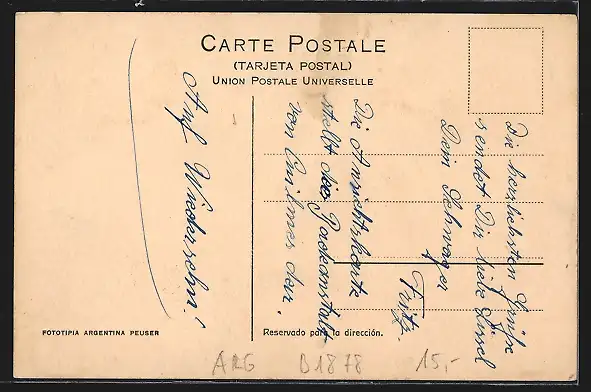 CARTE POSTALE
(TARJETA POSTAL)
UNION POSTALE UNIVERSELLE
Die herzlichsten Grüße
sendet Dir liebe Lissel
Dein Schwager
Fritz.
Die Ansichtskarte
stellt die Badeanstalt
von
dar.
Auf Wiedersehn!
FOTOTIPIA ARGENTINA PEUSER
Reservado para la dirección.
ARG D1878 15,-